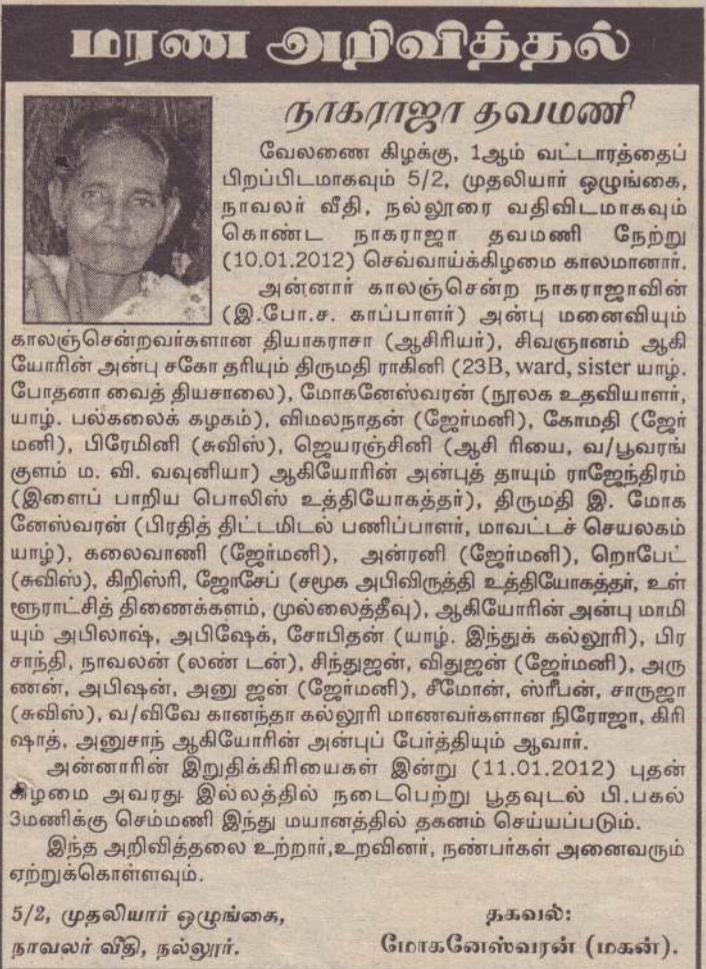 மரண அறிவித்தல்
நாகராஜா தவமணி
வேலணை கிழக்கு, 1ஆம் வட்டாரத்தைப்
பிறப்பிடமாகவும் 5/2, முதலியார் ஒழுங்கை,
நாவலர் வீதி, நல்லூரை வதிவிடமாகவும்
கொண்ட நாகராஜா தவமணி நேற்று
(10.01.2012) செவ்வாய்க்கிழமை காலமானார்.
அன்னார் காலஞ்சென்ற நாகராஜாவின்
(இ.போ.ச. காப்பாளர்) அன்பு மனைவியும்
காலஞ்சென்றவர்களான தியாகராசா (ஆசிரியர்), சிவஞானம் ஆகி
யோரின் அன்பு சகோ தரியும் திருமதி ராகினி (23B, ward, sister யாழ்.
போதனா வைத் தியசாலை), மோகனேஸ்வரன் (நூலக உதவியாளர்,
யாழ். பல்கலைக் கழகம்), விமலநாதன் (ஜேர்மனி), கோமதி (ஜேர்
மனி), பிரேமினி (சுவிஸ்), ஜெயரஞ்சினி (ஆசி ரியை, வ/பூவரங்
குளம் ம. வி. வவுனியா) ஆகியோரின் அன்புத் தாயும் ராஜேந்திரம்
(இளைப் பாறிய பொலிஸ் உத்தியோகத்தர்), திருமதி இ. மோக
னேஸ்வரன் (பிரதித் திட்டமிடல் பணிப்பாளர், மாவட்டச் செயலகம்
யாழ்), கலைவாணி (ஜேர்மனி), அன்ரனி (ஜேர்மனி), றொபேட்
(சுவிஸ்), கிறிஸ்ரி, ஜோசேப் (சமூக அபிவிருத்தி உத்தியோகத்தர், உள்
ளூராட்சித் திணைக்களம், முல்லைத்தீவு), ஆகியோரின் அன்பு மாமி
யும் அபிலாஷ், அபிஷேக், சோபிதன் (யாழ். இந்துக் கல்லூரி), பிர
சாந்தி, நாவலன் (லண் டன்), சிந்துஜன், விதுஜன் (ஜேர்மனி), அரு
ணன், அபிஷன், அனு ஜன் (ஜேர்மனி), சீமோன், ஸ்ரீபன், சாருஜா
(சுவிஸ்), வ/விவே கானந்தா கல்லூரி மாணவர்களான நிரோஜா, கிரி
ஷாத், அனுசாந் ஆகியோரின் அன்புப் பேர்த்தியும் ஆவார்.
அன்னாரின் இறுதிக்கிரியைகள் இன்று (11.01.2012) புதன்
கிழமை அவரது இல்லத்தில் நடைபெற்று பூதவுடல் பி.பகல்
3மணிக்கு செம்மணி இந்து மயானத்தில் தகனம் செய்யப்படும்.
இந்த அறிவித்தலை உற்றார்,உறவினர், நண்பர்கள் அனைவரும்
ஏற்றுக்கொள்ளவும்.
5/2, முதலியார் ஒழுங்கை,
நாவலர் வீதி, நல்லூர்.
தகவல்:
மோகனேஸ்வரன் (மகன்).